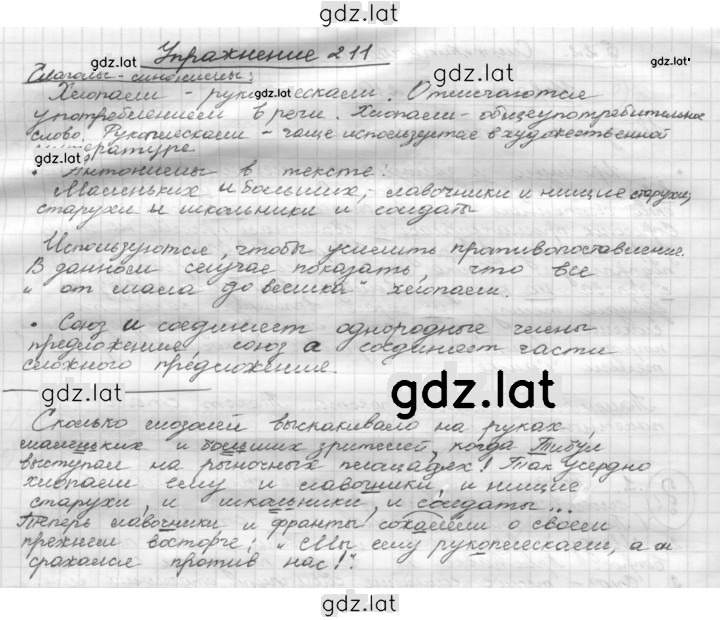 gdz.lat
Упражнение 211
gdz.lat
gdz.lat
Глаголы - синонимы:
Хлопали - рукоплескали. Отличаются
gdz.lat
употреблением в речи. Хлопали - общеупотребительное
слово. Рукоплескали - чаще используется в художественной
gdz.lat
литературе
• Антонимы в тексте:
Маленьких и больших, лавочники и нищие старухи,
старухи и школьники и солдаты
Используются, чтобы усилить противопоставление.
В данном случае показать, что все
"от мала до велика" хлопали.
• Союз и соединяет однородные члены
предложение, союз а соединяет части
сложного предложения.
gdz.lat
gdz.lat
Сколько мозолей выскакивало на руках
маленьких и больших зрителей, когда Тибул
выступал на рыночных площадях! Так усердно
хлопали ему и лавочники и нищие
старухи, и школьники, и солдаты...
Теперь лавочники и франты сожалели о своем
прежнем восторге: "Мы ему рукоплескали, а он
сражался против нас!".
gdz.lat